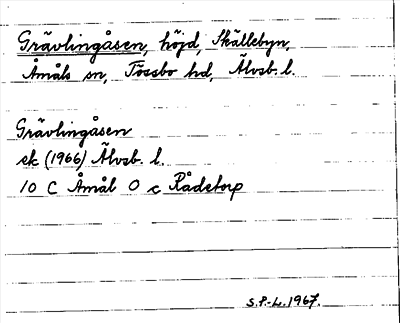 Grävlingåsen, höjd, Skällebyn,
Åmåls sn, Tössbo hd, Älvsb. l.
Grävlingåsen
ek (1966) Älvsb. l.
10 C Åmål O c Rådetorp
S.P.-L. 1967.